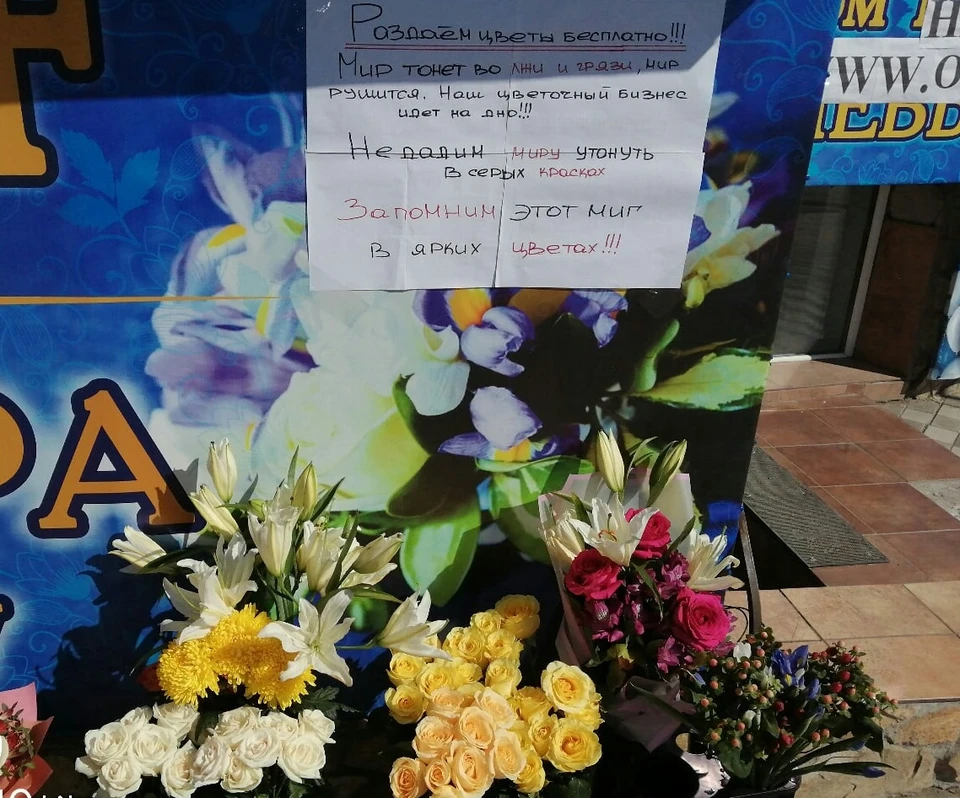 Раздаём цветы бесплатно!!!
Мир тонет во лжи и грязи, мир
рушится. Наш цветочный бизнес
идет на дно!!!
Не дадим миру утонуть
в серых красках
Запомним этот миг
в ярких цветах!!!
М
WWW.O
РА